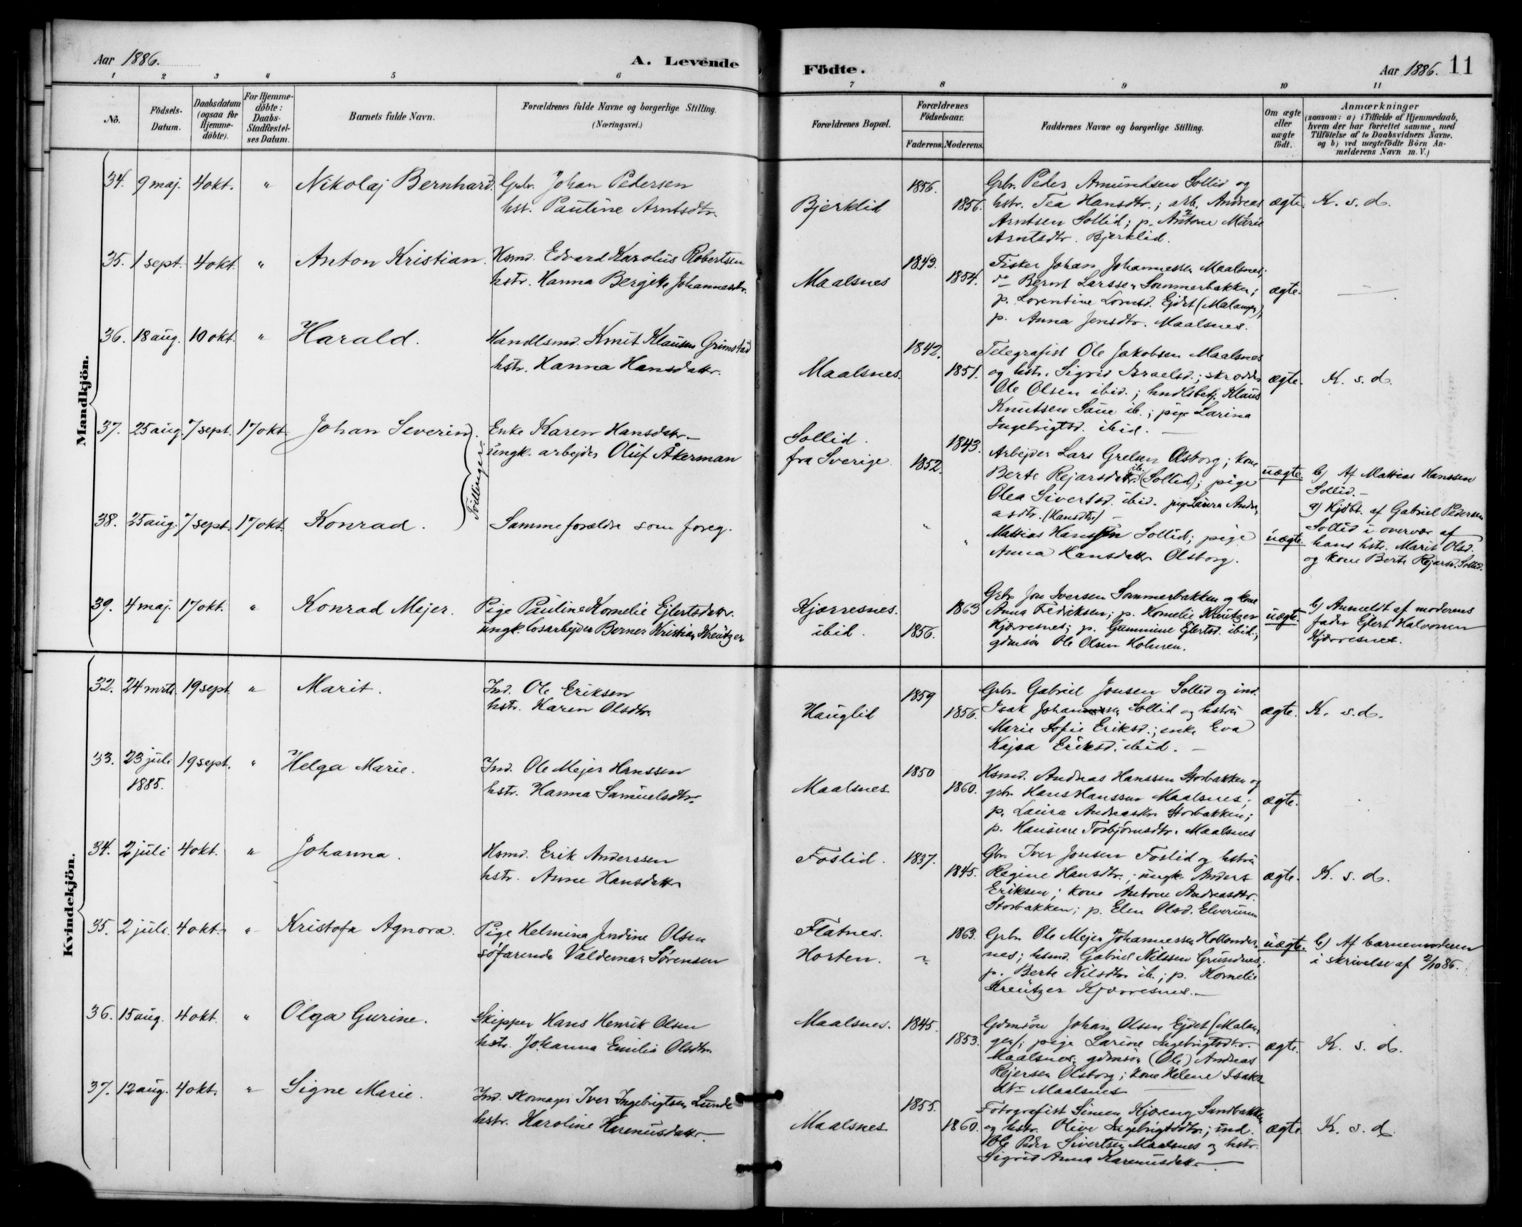 Aar 1886.
A. Levende
Födte.
Aar 1886. 11
1 2 3 4 5 6 7 8 9 10 11
No.
Födsels-
Datum.
Daabsdatum
(ogsaa for
Hjemme-
döbte).
For Hjemme-
döbte:
Daabs-
Stadfæstel-
ses Datum.
Barnets fulde Navn.
Forældrenes fulde Navne og borgerlige Stilling.
(Næringsvei.)
Forældrenes Bopæl.
Forældrenes
Födselsaar.
Faderens. Moderens.
Faddernes Navne og borgerlige Stilling.
Om ægte
eller
uægte
födt.
Anmærkninger
(saasom: a) i Tilfælde af Hjemmedaab,
hvem der har forrettet samme, med
Tilföielse af to Daabsvidners Navne,
og b) ved uægtefödte Börn An-
melderens Navn m. V.)
Mandkjön.
34. 9 maj. 4 okt. " Nikolaj Bernhard. Gbr. Johan Pedersen
hst. Pauline Arntsdtr.
Bjerklid 1856. 1856.
Gbr. Peder Amundsen Sollid og
hstr. Tea Hansdtr.; arb. Andreas
Arntsen Sollid; p. Antone Marie
Arntsdtr. Bjerklid.
ægte. K. s. d.
35. 1 sept. 4 okt. " Anton Kristian. Hsmd. Edvard Karolus Robertsen
hstr. Hanna Bergitte Johannesdtr.
Maalsnes 1843. 1854.
Fisker Johan Johannessen Maalsnes;
do Bernt Larssen Sommerbakken;
p. Lorentine Lornsd. Ejdet (Malangen),
p. Anna Jensdtr. Maalsnes.
ægte. —
36. 18 aug. 10 okt. " Harald. Handlsmd. Knut Klausen Grimstad
hstr. Hanna Hansdatr.
Maalsnes. 1842. 1851.
Telegrafist Ole Jakobsen Maalsnes
og hstr. Sigrid Israelsd.; skrædder
Ole Olsen ibid.; handlsbetj. Klaus
Knutsen Saue ib.; pige Larina
Ingebrigtsd. ibid. —
ægte. K. s. d.
37. 25 aug. 7 sept. 17 okt. Johan Severin. Enke Karen Hansdatr. —
ungk. arbejder Oluf Åkerman
Tvillinger.
Sollid.
fra Sverige. 1852. 1843.
Arbejder Lars Grelsen Olsborg; kone
Berte Rejarsdatr (Sollid); pige
Olea Sivertsd. ibid. pige Laura Andre-
asdtr. (Hansdtr) —
uægte b) Af Mattias Hanssen
Sollid. —
38. 25 aug. 7 sept. 17 okt. Konrad. Samme forældre som foreg.
" "
Mattias Hanssen Sollid; pige
Anna Hansdatr Olsborg.
uægte. a) Hjdbt. af Gabriel Pedersen
Sollid i overvær af
hans hstr. Marit Olsd.
og kone Berte Rejarsd. Sollid.
39. 4 maj. 17 okt. " Konrad Mejer. Pige Pauline Kornelie Ejlertsdatr.
ungk. losarbejder Berner Kristian Kreutzer
Kjærresnes.
ibid. 1856. 1863
Gbr. Jon Iversen Sommerbakken og kone
Anna Fedriksen; p. Kornelie Kreutzer
Kjærresnes; p. Gunmine Ejlertsd. ibid.;
gdmsön Ole Olsen Holmen.
uægte. b) Anmeldt af moderens
fader Ejlert Halvorsen
Kjærresnes.
Kvindekjön.
32. 24 mrts. 19 sept. " Marit. Ind. Ole Eriksen
hstr. Karen Olsdtr.
Hauglid 1859 1856.
Gbr. Gabriel Jonsen Sollid og ind.
Isak Johannessen Sollid og hstru
Marie Sofie Eriksd.; enke Eva
Kajsa Eriksd. ibid. —
ægte. K. s. d.
33. 23 juli
1885. 19 sept. " Helga Marie. Ind. Ole Mejer Hanssen
hstr. Hanna Samuelsdtr.
Maalsnes. 1850 1860.
Hsmd. Andreas Hanssen Storbakken og
gbr. Hans Hanssen Maalsnes;
p. Laura Andreasdtr. Storbakken;
p. Hansine Torbjörnsdtr. Maalsnes
ægte.
34. 2 juli 4 okt. " Johanna. Hsmd. Erik Anderssen
hstr. Anne Hansdatr
Foslid. 1837. 1845.
Gbr. Iver Jonsen Foslid og hstru
Regine Hansdtr.; ungk Anders
Eriksen; kone Antone Andreasdtr.
Storbakken; p. Elen Olsd. Elverum
ægte. K. s. d.
35. 2 juli. 4 okt. " Kristofa Agnora. Pige Helmina Jendine Olsen
söfarende Valdemar Sörensen
Flatnes.
Horten. 1863.
Gbr. Ole Mejer Johannessen Hollender-
nes; hsmd. Gabriel Nilssen Grundnes;
p. Berte Nilsdtr ib.; p. Kornelie
Kreutzer Kjærresnes. —
uægte. b) Af barnemoderen
i skrivelse af 2/10 86.
36. 15 aug. 4 okt. " Olga Gurine. Skipper Hans Henrik Olsen
hstr. Johanna Emilie Olsdtr.
Maalsnes. 1845. 1853.
Gdmsön Johan Olsen Ejdet (Malan-
gen); pige Larine Ingebrigtsdtr.
Maalsnes; gdmsön (Ole) Andreas
Rejersen Olsborg; kone Helene Isaks-
dtr Maalsnes
ægte. K. s. d.
37. 12 aug. 4 okt. " Signe Marie. Ind. skomager Iver Ingebrigtsen Lunde
hstr. Karoline Haremusdatr. —
Maalsnes 1855. 1860.
Fotografist Simen Kjæreng Sandbakken
og hstr. Oline Ingebrigtsdtr.; ind.
Ole Peder Sivertsen Maalsnes og hstr.
Sigrid Anna Karemusdatr —
ægte K. s. d.